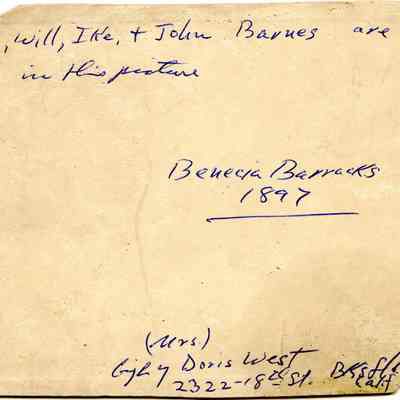 , Will, Ike, + John Barnes are
in this picture
Benecia Barracks
1897
(Mrs)
Doris West
2322-18th St. Bksfld
Calif